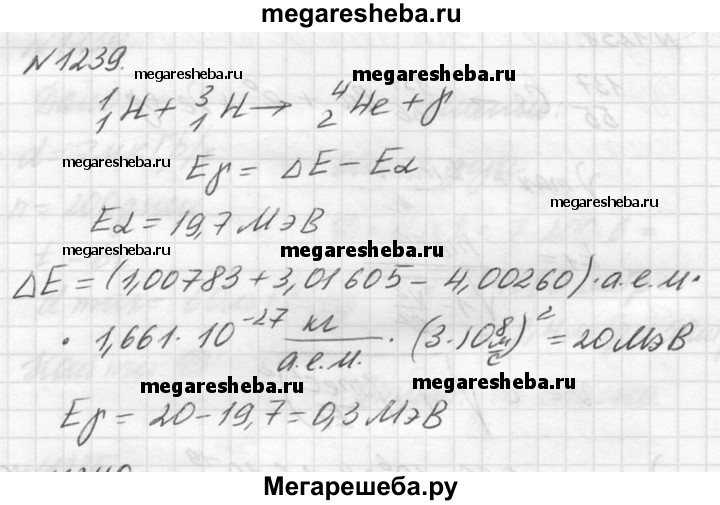 megaresheba.ru
N1239.
megaresheba.ru
megaresheba.ru
¹₁H + ³₁H → ⁴₂He + γ
megaresheba.ru
Eγ = ΔE - Eα
megaresheba.ru
Eα = 19,7 МэВ
megaresheba.ru
megaresheba.ru
ΔE = (1,00783 + 3,01605 - 4,00260) · а.е.м ·
· 1,661 · 10⁻²⁷ кг/а.е.м. · (3·10⁸ м/с)² = 20 МэВ
megaresheba.ru
megaresheba.ru
Eγ = 20 - 19,7 = 0,3 МэВ
Мегарешеба.ру